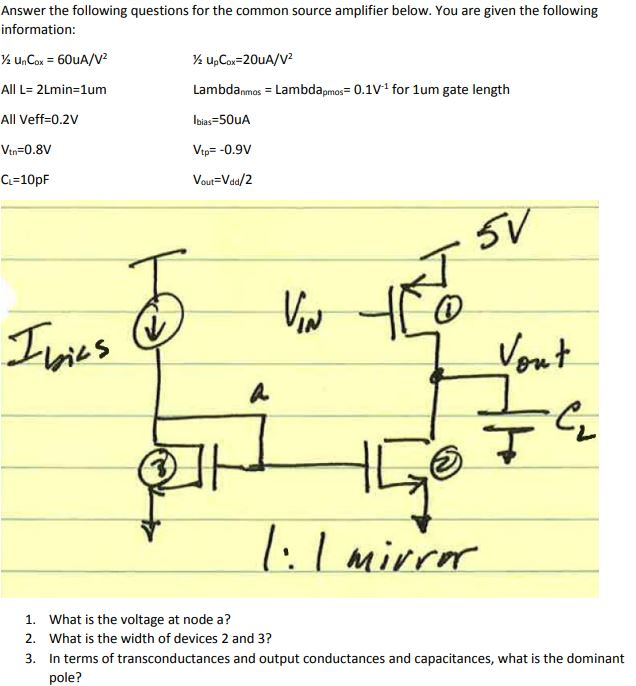 Answer the following questions for the common source amplifier below. You are given the following
information:
½ uₙCox = 60uA/V² ½ uₚCox=20uA/V²
All L= 2Lmin=1um Lambdanmos = Lambdapmos= 0.1V⁻¹ for 1um gate length
All Veff=0.2V Ibias=50uA
Vtn=0.8V Vtp= -0.9V
CL=10pF Vout=Vdd/2
5V
VIN
1
Ibias
Vout
a
CL
3
2
1:1 mirror
1. What is the voltage at node a?
2. What is the width of devices 2 and 3?
3. In terms of transconductances and output conductances and capacitances, what is the dominant
pole?